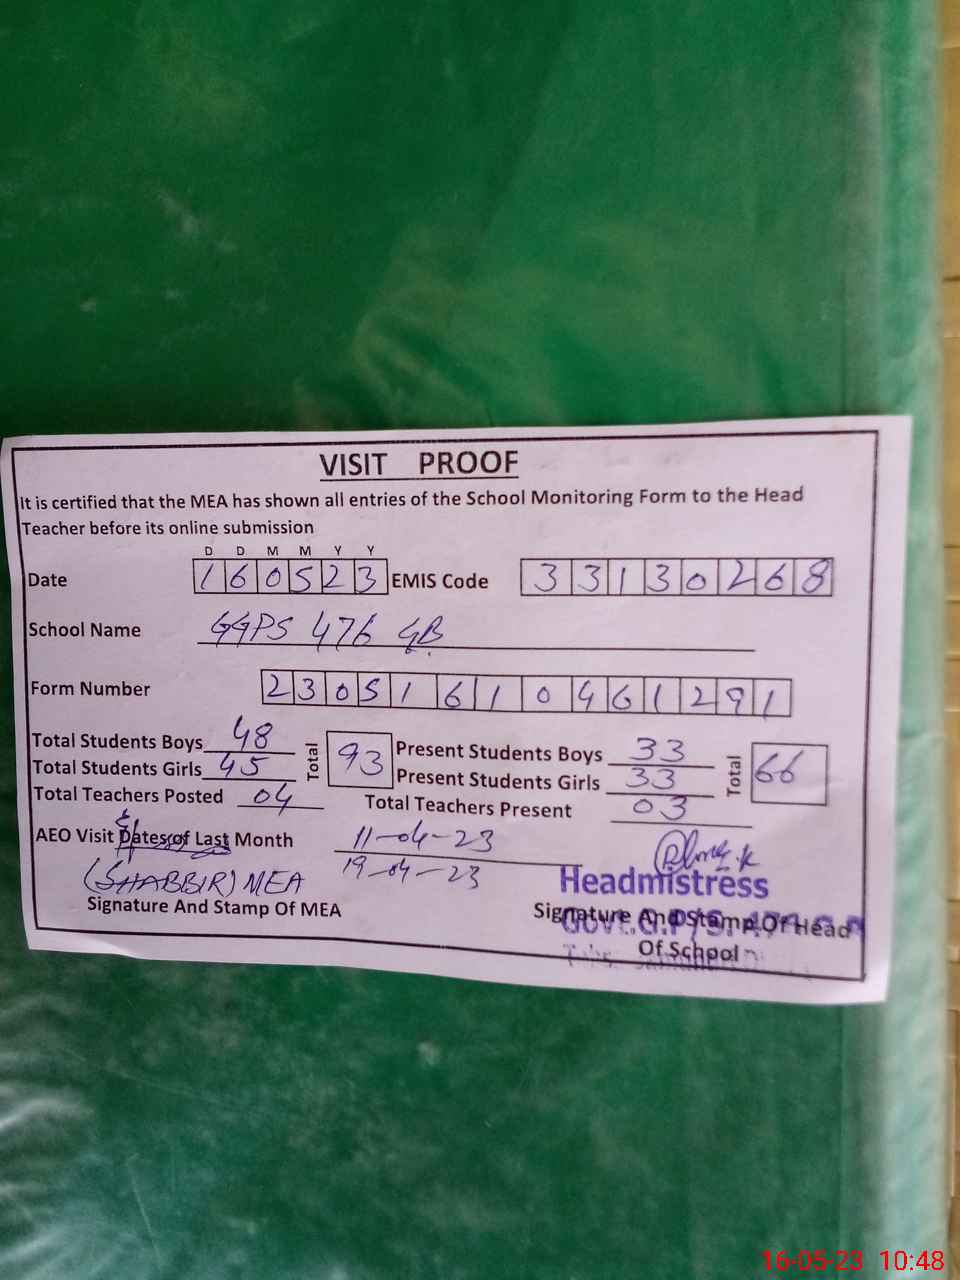 VISIT PROOF
It is certified that the MEA has shown all entries of the School Monitoring Form to the Head
Teacher before its online submission
D D M M Y Y
Date 160523 EMIS Code 33130268
School Name GGPS 476 GB
Form Number 2305161046 1291
Total Students Boys 48 Total 93 Present Students Boys 33 Total 66
Total Students Girls 45 Present Students Girls 33
Total Teachers Posted 04 Total Teachers Present 03
AEO Visit Dates of Last Month 11-04-23
19-04-23
(SHABBIR) MEA Headmistress
Signature And Stamp Of MEA Signature And Stamp Of Head
Of School
16-05-23 10:48